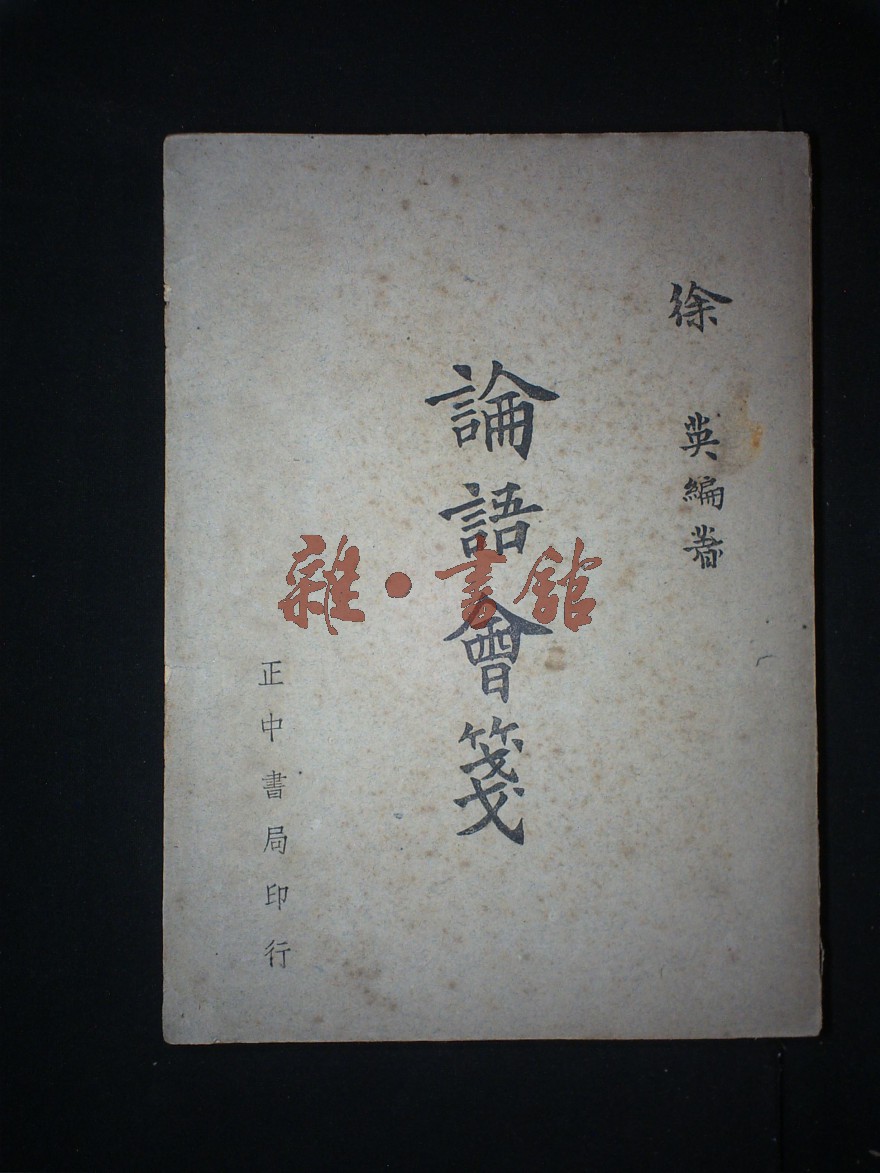 徐英編著
論語會箋
正中書局印行
雜·書館